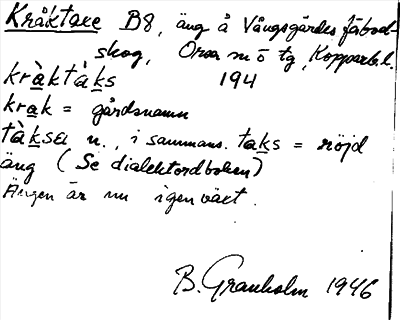 Kråktaxe B8, äng å Vångsgärdes fäbod-
skog, Orsa sn ö tg, Kopparb.l.
kràktàks 194
krak = gårdsnamn
tàksa n., i sammans. taks = röjd
äng (Se dialektordboken)
Ängen är nu igenväxt.
B. Granholm 1946